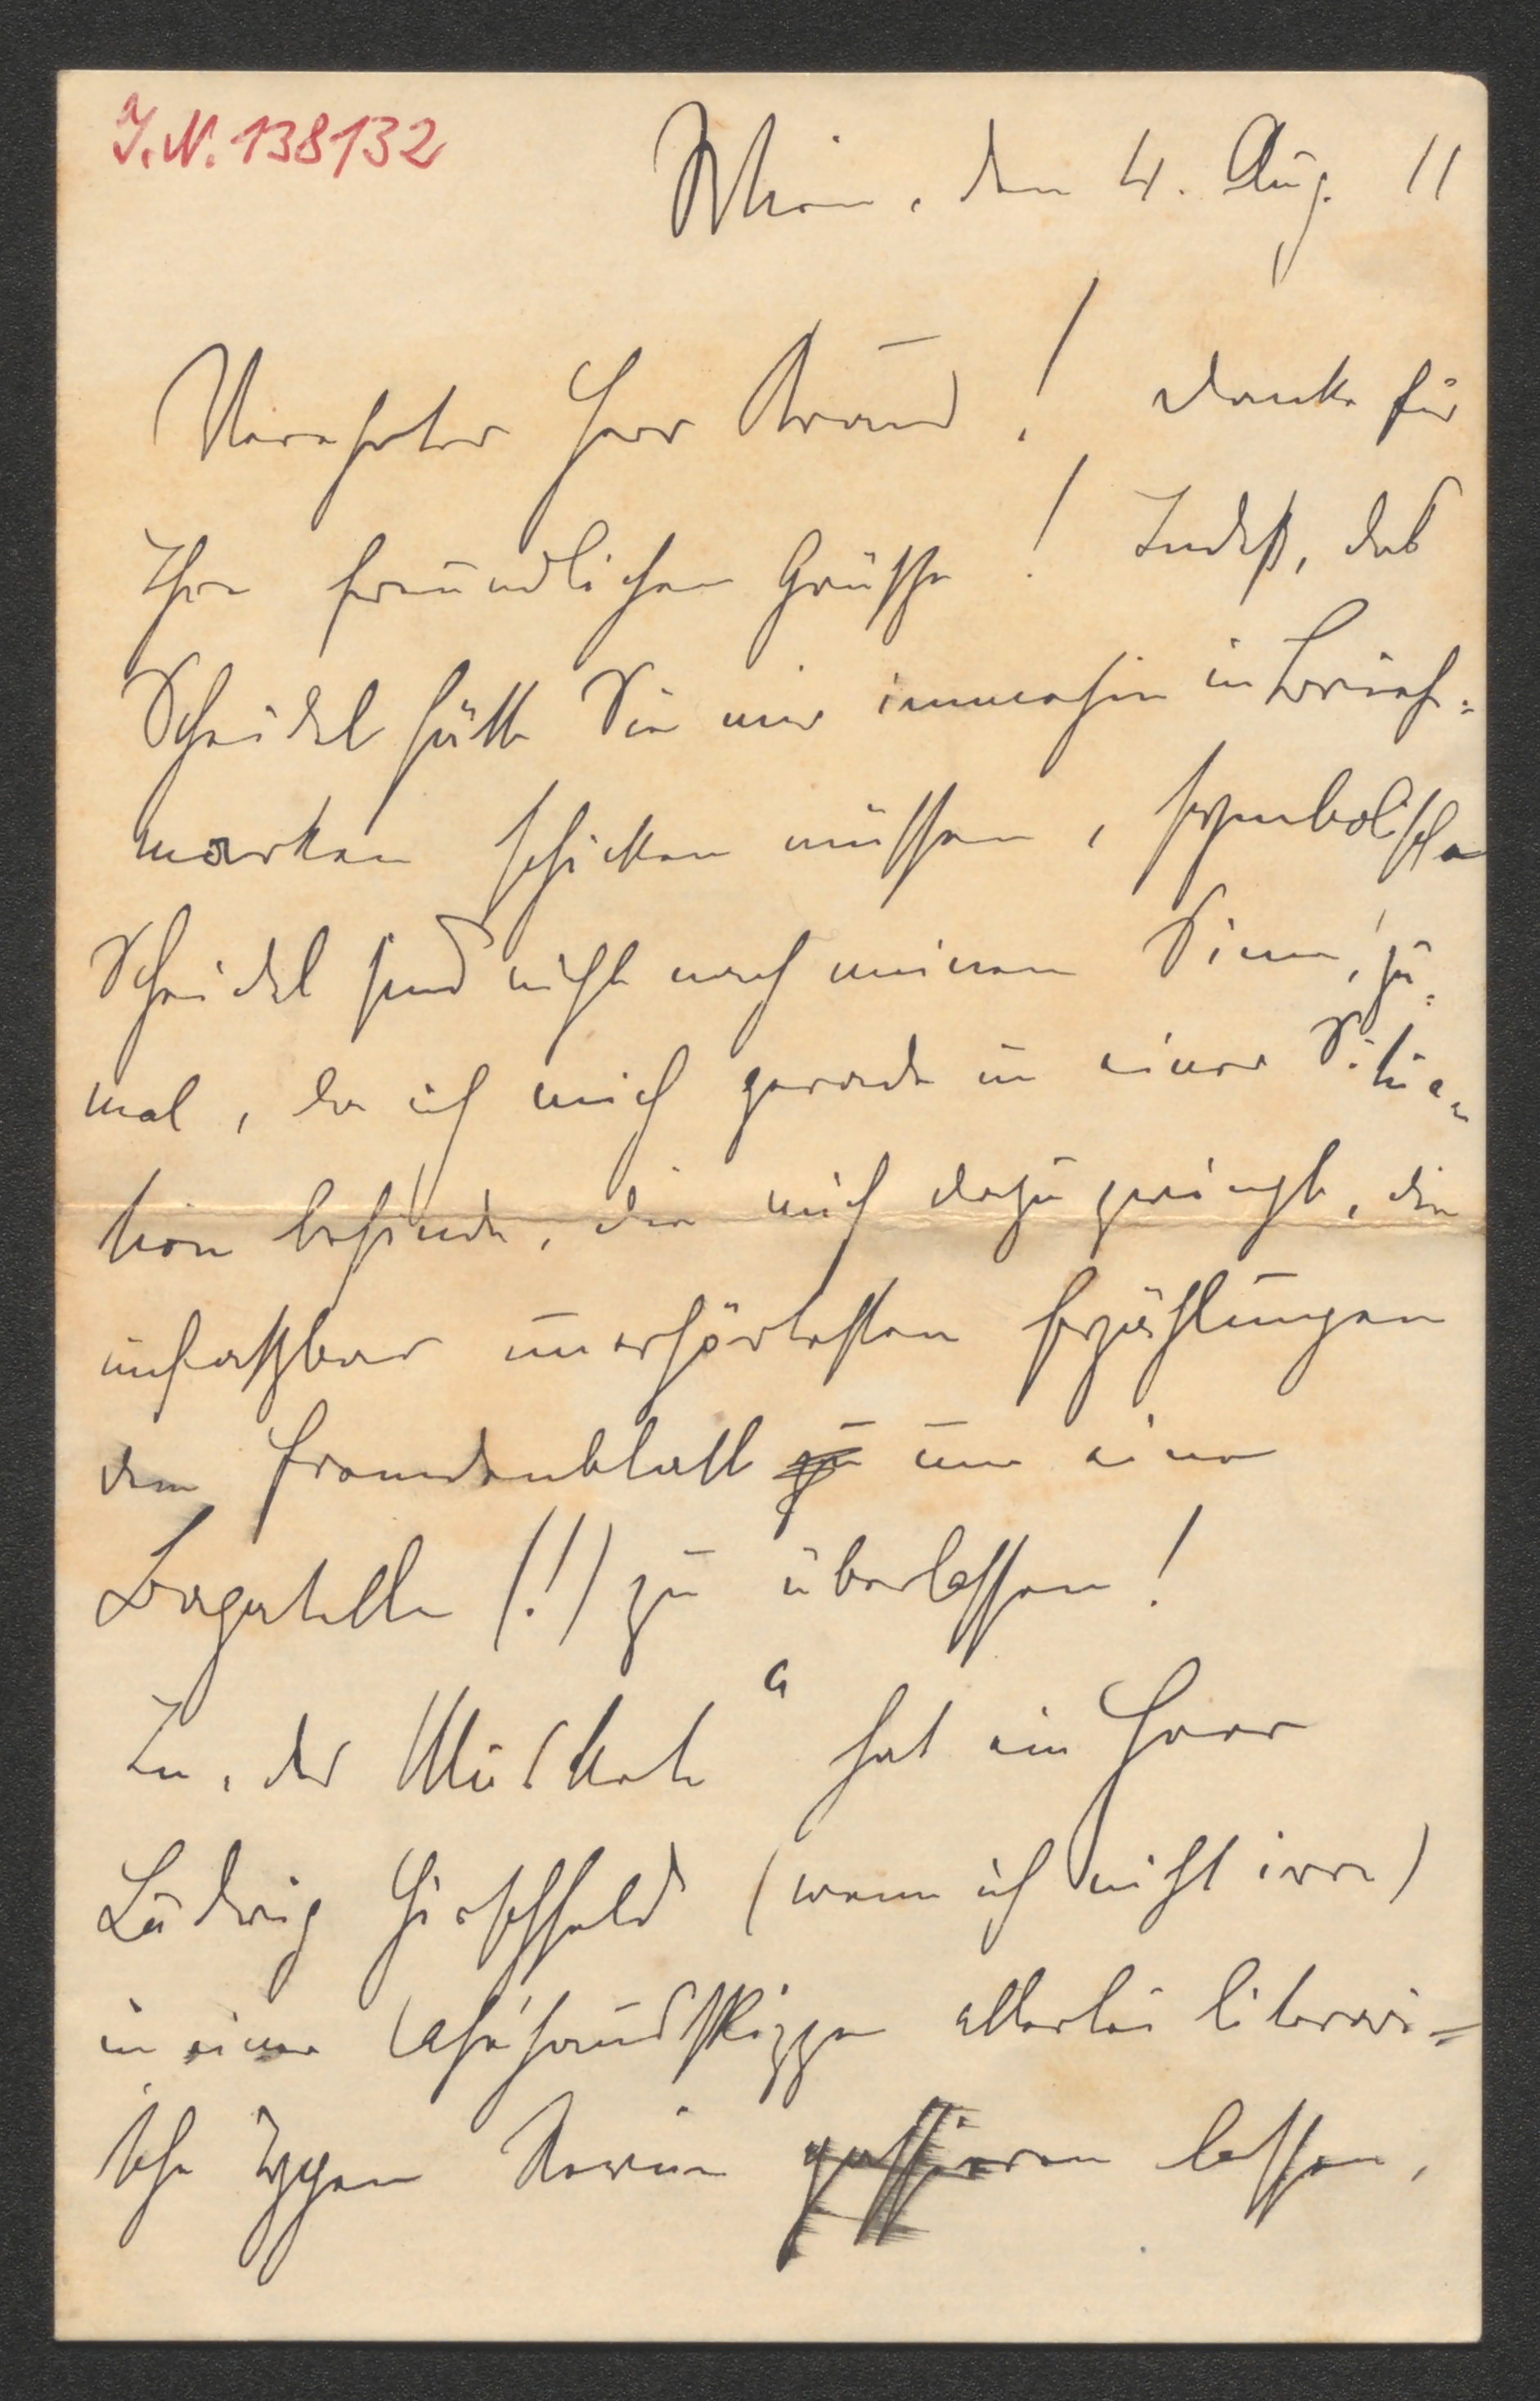 J.N. 138132
Wien, den 4. Aug. 11
Verehrter Herr Kraus! Danke für
Ihre freundlichen Grüsse! Indeß, das
Scheidel hätte Sie mir immerhin in Brief=
marken schicken müssen, symbolische
Scheidel sind nicht nach meinem Sinn, zu=
mal, da ich mich gerade in einer Situa=
tion befinde, die mich dazu zwingt, die
unfaßbar unerhörtesten Erzählungen
dem Fremdenblatt zu um eine
Bagatelle (!) zu überlassen!
In „der Muskete“ hat ein Herr
Ludwig Hirschfeld (wenn ich nicht irre)
in einer Caféhausskizze allerlei literari=
sche Typen Revue passieren lassen,